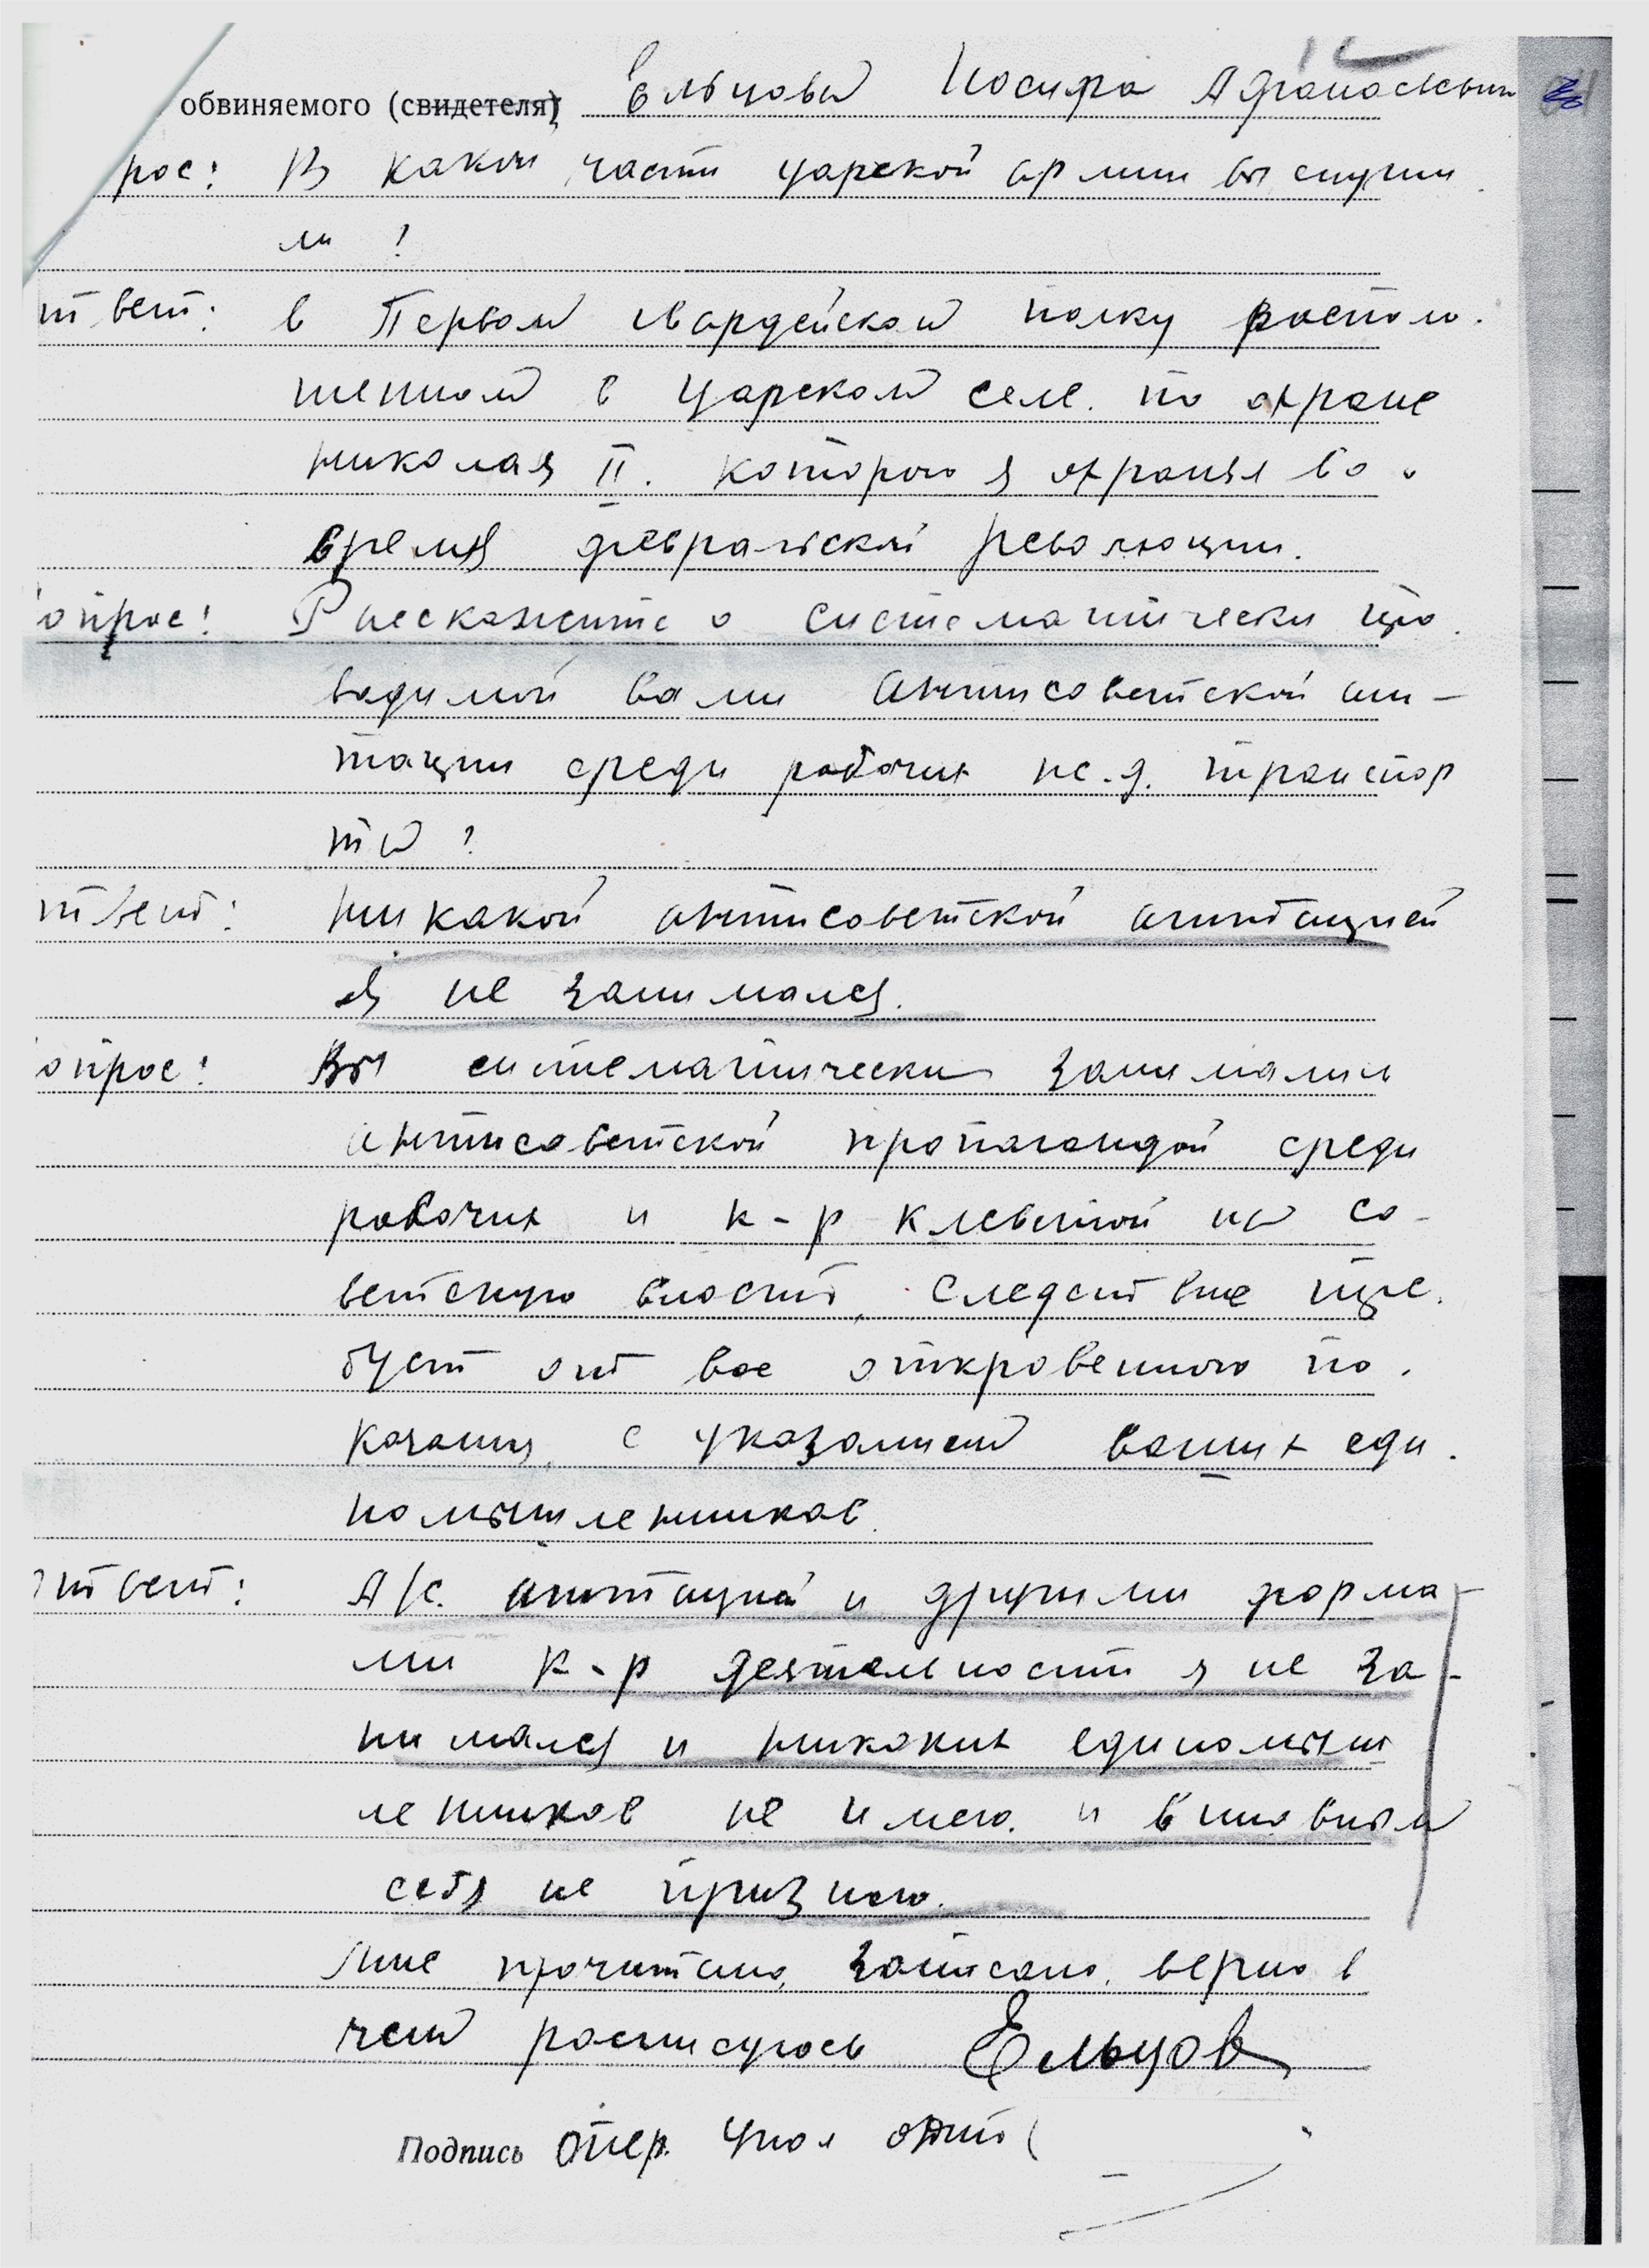 обвиняемого (свидетеля) Ельцова Иосифа Афанасьевич
рос: В какой части царской армии вы служи
ли ?
твет: в Первом гвардейском полку располо-
женном в Царском селе. по охране
Николая II. которого я охранял во
время февральской революции.
опрос: Расскажите о систематически про-
водимой вами антисоветской аги-
тации среди рабочих ж.д. транспор
та ?
твет: Никакой антисоветской агитацией
я не занимался.
опрос: Вы систематически занимались
антисоветской пропагандой среди
рабочих и к-р клеветой на со-
ветскую власть, следствие тре-
бует от вас откровенного по-
казания, с указанием ваших еди-
номышленников.
твет: А/с. агитацией и другими форма-
ми к-р деятельности я не за-
нимался и никаких единомыш
ленников не имею. и виновным
себя не признаю.
Мне прочитано, записано верно в
чем расписуюсь Ельцов
Подпись Опер. Упол